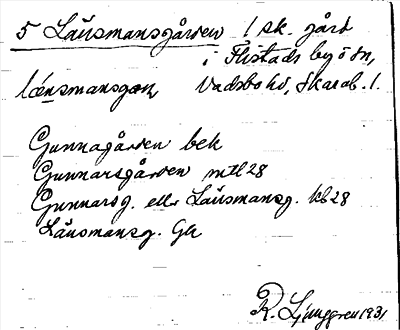 5 Länsmansgården 1 sk. gård
i Flistads by ö sn,
länsmansgọn, Vadsbo hd, Skarab. l.
Gunnagården bek
Gunnarsgården mtl 28
Gunnarsg. ell. Länsmansg. kb 28
Länsmansg. GK
R. Ljunggren 1931